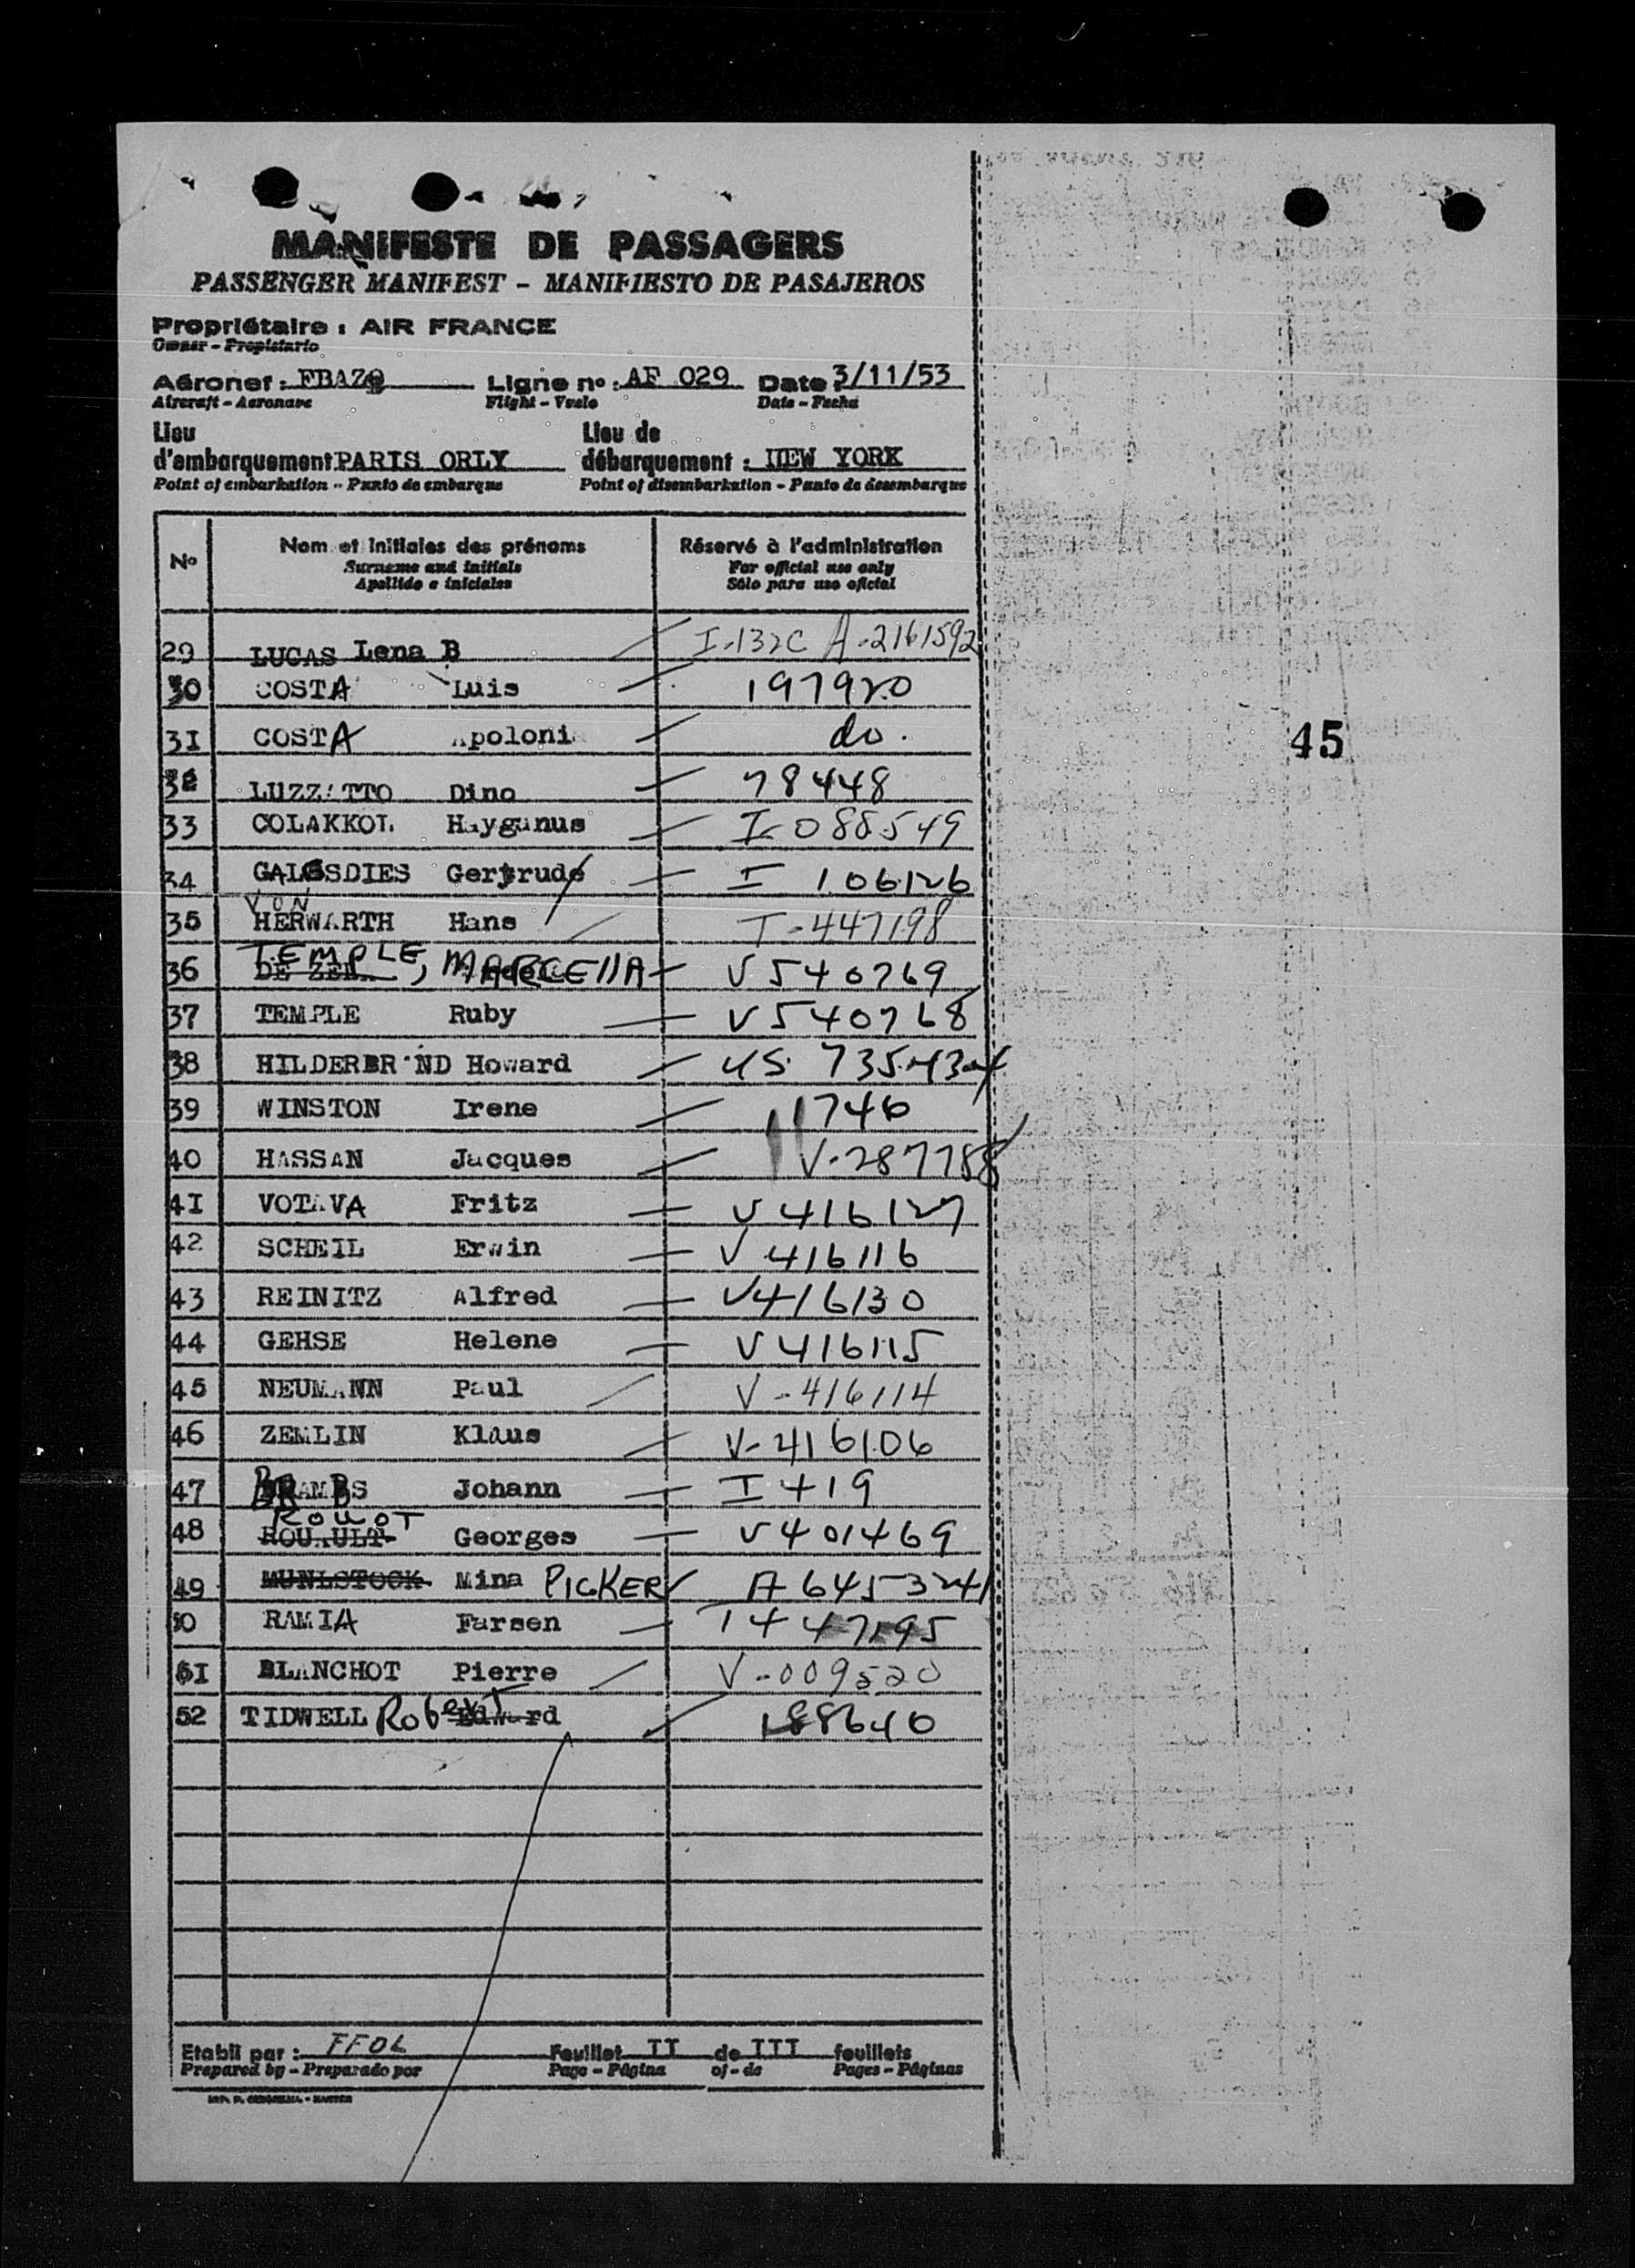 MANIFESTE DE PASSAGERS
PASSENGER MANIFEST - MANIFIESTO DE PASAJEROS
Propriétaire : AIR FRANCE
Owner - Propietario
Aéronef : FBAZQ Ligne nº : AF 029 Date 3/11/53
Aircraft - Aeronave Flight - Vuelo Date - Fecha
Lieu d'embarquement PARIS ORLY Lieu de débarquement : NEW YORK
Point of embarkation - Punto de embarque Point of disembarkation - Punto de desembarque
Nº Nom et initiales des prénoms Réservé à l'administration
Surname and initials For official use only
Apellido e iniciales Sólo para uso oficial
29 LUCAS Lena B I-132C A-2161592
30 COSTA Luis 197920
31 COSTA Apolonia do.
32 LUZZATTO Dino 78448
33 COLAKKOL Hayganus I-088549
34 Gertrude I 106126
35 VON HERWARTH Hans I-447198
36 TEMPLE, MARCELLA V540769
37 TEMPLE Ruby V540768
38 HILDERBRAND Howard US 735434
39 WINSTON Irene 11746
40 HASSAN Jacques V-287788
41 VOTAVA Fritz V416127
42 SCHEIL Erwin V416116
43 REINITZ Alfred V416130
44 GEHSE Helene V416115
45 NEUMANN Paul V-416114
46 ZEMLIN Klaus V-416106
47 BRAMBS Johann I 419
48 ROUAULT ROUOT Georges V401469
49 MUNLSTOCK Mina PICKER A6453241
50 RAMIA Farsen I447195
51 BLANCHOT Pierre V-009520
52 TIDWELL Robert Edward 188640
45
Etabli par : FFOL Feuillet II de III feuillets
Prepared by - Preparado por Page - Página of - de Pages - Páginas